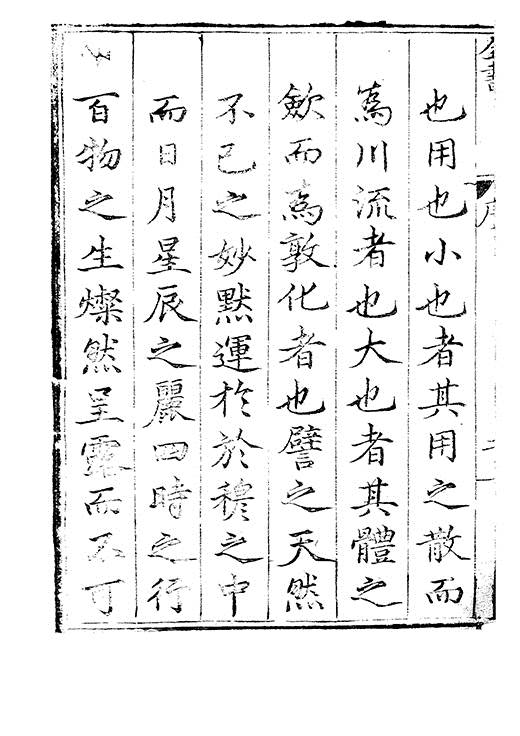 序
也用也小也者其用之散而
為川流者也大也者其體之
歛而為敦化者也譬之天然
不已之妙默運於於穆之中
而日月星辰之麗四時之行
百物之生燦然呈露而不可